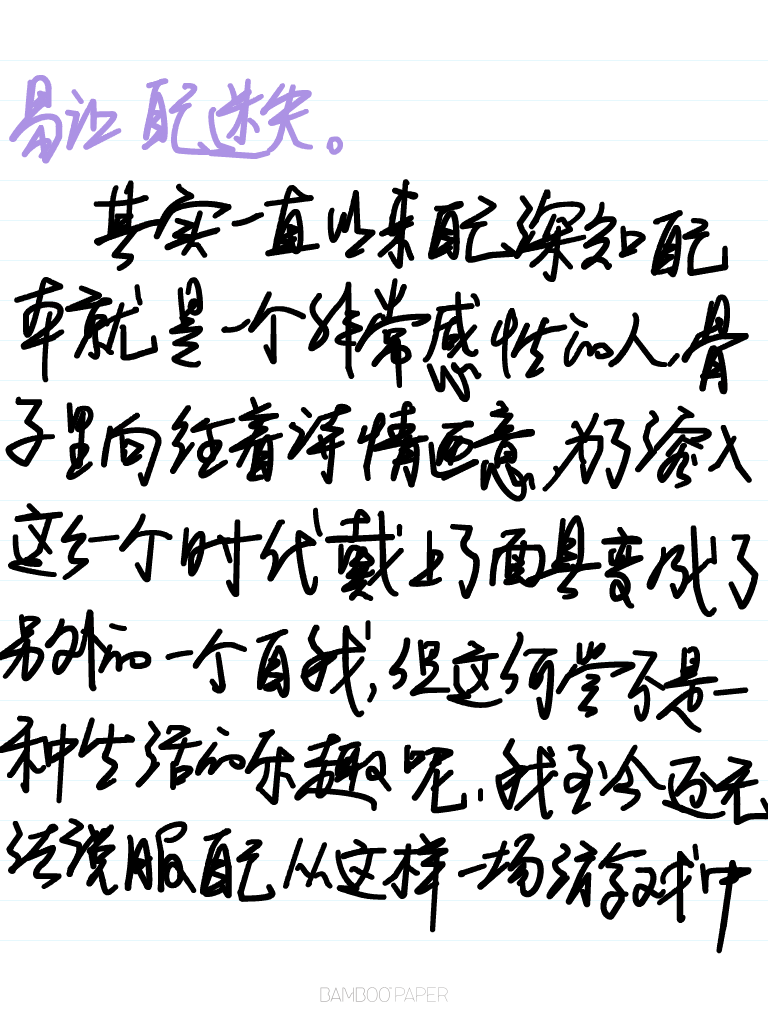 易让自己迷失。
其实一直以来自己深知自己
本就是一个非常感性的人,骨
子里向往着诗情画意,为了溶入
这么一个时代戴上了面具变成了
另外的一个自我,但这何尝不是一
种生活的乐趣呢,我至今还无
法说服自己从这样一场游戏中
BAMBOO PAPER